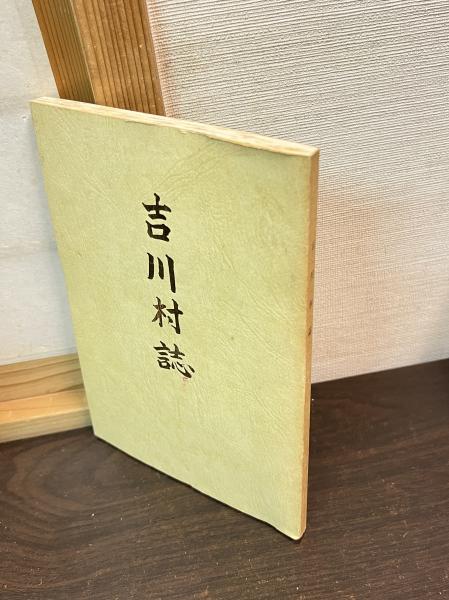 吉川村誌